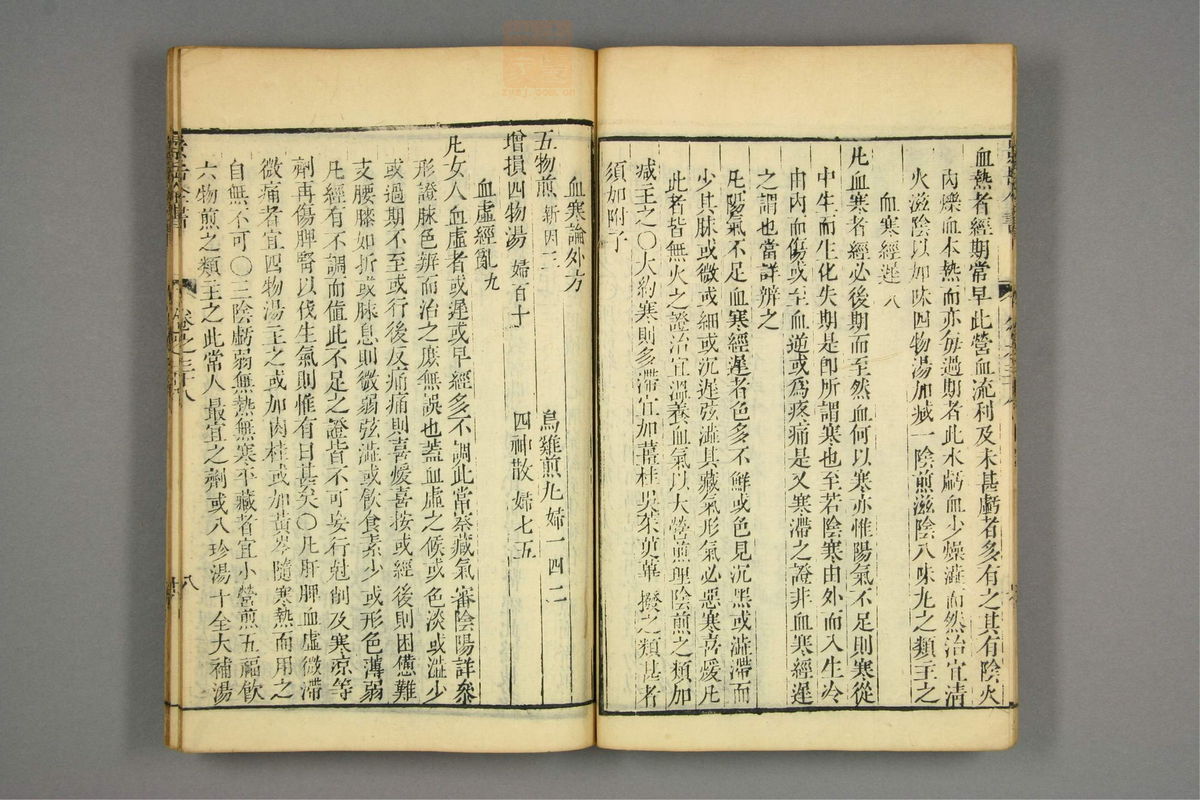 血熱者經期常早此營血流利及未甚虧者多有之其有陰火
內爍血本熱而亦每過期者此水虧血少燥澁而然治宜清
火滋陰以加味四物湯加減一陰煎滋陰八味丸之類主之
血寒經遲 八
凡血寒者經必後期而至然血何以寒亦惟陽氣不足則寒從
中生而生化失期是即所謂寒也至若陰寒由外而入生冷
由內而傷或至血逆或爲疼痛是又寒滯之證非血寒經遲
之謂也當詳辨之
凡陽氣不足血寒經遲者色多不鮮或色見沉黑或澁滯而
少其脉或微或細或沉遲弦澁其藏氣形氣必惡寒喜煖凡
此者皆無火之證治宜溫養血氣以大營煎理陰煎之類加
减主之〇大約寒則多滯宜加薑桂吳茱萸蓽撥之類甚者
須加附子
血寒論外方
五物煎 新因三 烏雞煎丸 婦一四二
增損四物湯 婦百十 四神散 婦七五
血虛經亂 九
凡女人血虛者或遲或早經多不調此當察藏氣審陰陽詳叅
形證脉色辨而治之庻無誤也蓋血虛之候或色淡或澁少
或過期不至或行後反痛痛則喜煖喜按或經後則困憊難
支腰膝如折或脉息則微弱弦澁或飲食素少或形色薄弱
凡經有不調而值此不足之證皆不可妄行尅削及寒凉等
劑再傷脾腎以伐生氣則惟有日甚矣〇凡肝脾血虛微滯
微痛者宜四物湯主之或加肉桂或加黃芩隨寒熱而用之
自無不可〇三陰虧弱無熱無寒平藏者宜小營煎五福飲
六物煎之類主之此常人最宜之劑或八珍湯十全大補湯
景岳全書
卷之三十八
八